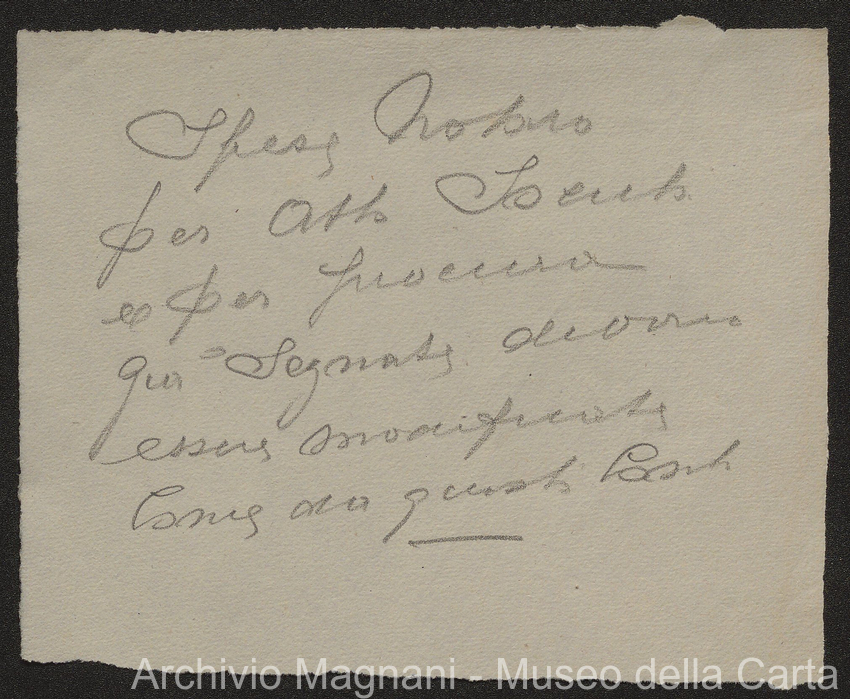 Spese Notaio
per Atto Scuti
e per procura
già Segnate devono
essere modificate
Come da questi Conti
Archivio Magnani - Museo della Carta